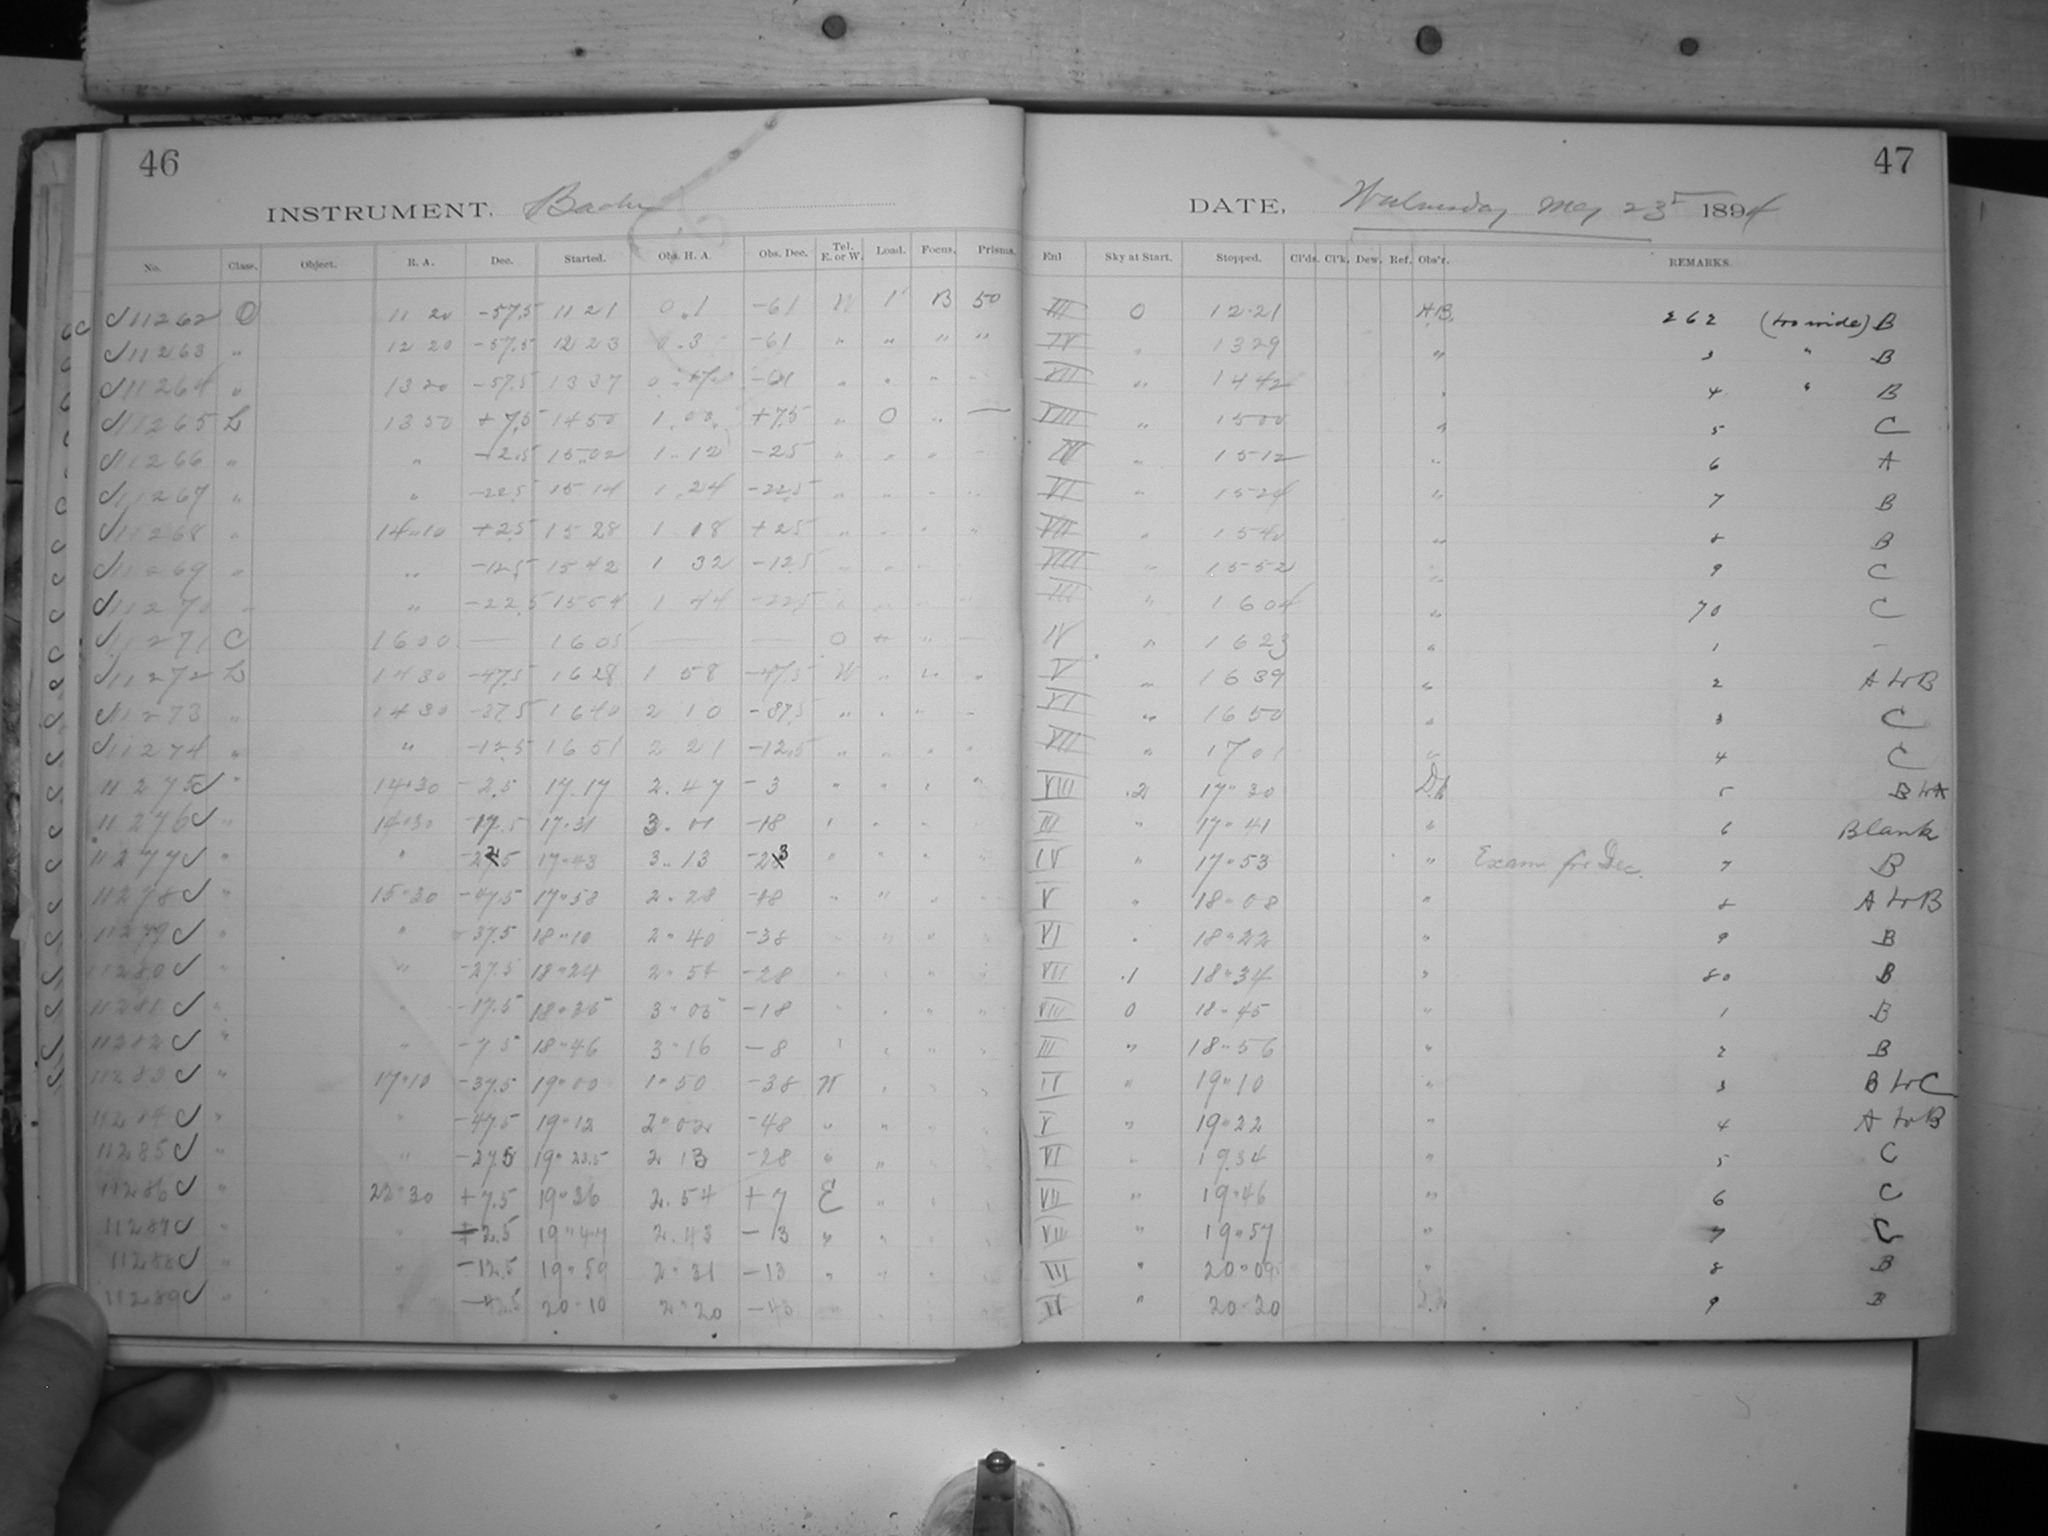 46
INSTRUMENT. Bache
No. Class. Object. R. A. Dec. Started. Obs. H. A. Obs. Dec. Tel. E. or W. Load. Focus. Prisms.
11262 O 11 20 -57.5 11 21 0..1 -61 W 1 B 50
11263 " 12 20 -57.5 12 23 0..3 -61 " " " "
11264 " 13 20 -57.5 13 37 -61 " " " "
11265 L 13 50 +7.5 14 50 1..00 +7.5 " O " —
11266 " " -2.5 15..02 1..12 -2.5 " " " "
11267 " " -22.5 15 14 1..24 -22.5 " " " "
11268 " 14..10 +2.5 15 28 1 18 +2.5 " " " "
11269 " " -12.5 15 42 1 32 -12.5 " " "
11270 " " -22.5 15 54 1 44 -22.5 " " " "
11271 C 16 00 — 16 05 — — O " —
11272 L 14 30 -47.5 16 28 1 58 -47.5 W " " "
11273 " 14 30 -37.5 16 40 2 10 -37.5 " " " "
11274 " " -12.5 16 51 2 21 -12.5 " " " "
11275 " 14..30 -2.5 17..17 2..47 -3 " " " "
11276 " 14..30 -17.5 17..31 3..01 -18 " " " "
11277 " " 17..43 3..13 -23 " " " "
11278 " 15..30 -47.5 17..58 2..28 -48 " " " "
11279 " " -37.5 18..10 2..40 -38 " " " "
11280 " " -27.5 18..24 2..54 -28 " " " "
11281 " " -17.5 18..35 3..05 -18 " " " "
11282 " " -7.5 18..46 3..16 -8 " " " "
11283 " 17..10 -37.5 19..00 1..50 -38 W " " "
11284 " " -47.5 19..12 2..02 -48 " " " "
11285 " " -27.5 19..23.5 2 13 -28 " " " "
11286 " 22..30 +7.5 19..36 2..54 +7 E " " "
11287 " " 2.5 19..47 2..43 -3 " " " "
11288 " " -12.5 19..59 2..31 -13 " " " "
11289 " " 20..10 2..20 " " " "
47
DATE, Wednesday May 23 1894
Enl Sky at Start. Stopped. Cl'ds. Cl'k. Dew. Ref. Obs'r. REMARKS.
III O 12..21 A.B. 262 (too wide) B
IV " 13 29 " 3 " B
VII " 14 42 " 4 " B
VIII " 15 00 " 5 C
" 15 12 " 6 A
VI " 15 24 " 7 B
VII " 15 40 " 8 B
VIII " 15 52 " 9 C
III " 16 04 " 70 C
IV " 16 23 " 1 -
V " 16 39 " 2 A to B
VI " 16 50 " 3 C
VII " 17 01 " 4 C
VIII .2 17..30 5 B to A
III " 17..41 " 6 Blank
IV " 17..53 " Exam for Dec. 7 B
V " 18..08 " 8 A to B
VI " 18..22 " 9 B
VII .1 18..34 " 80 B
VIII 0 18..45 " 1 B
III " 18..56 " 2 B
IV " 19..10 " 3 B to C
V " 19..22 " 4 A to B
VI " 19.34 " 5 C
VII " 19..46 " 6 C
VIII " 19..57 " 7 C
III " 20..09 " 8 B
IV " 20..20 9 B